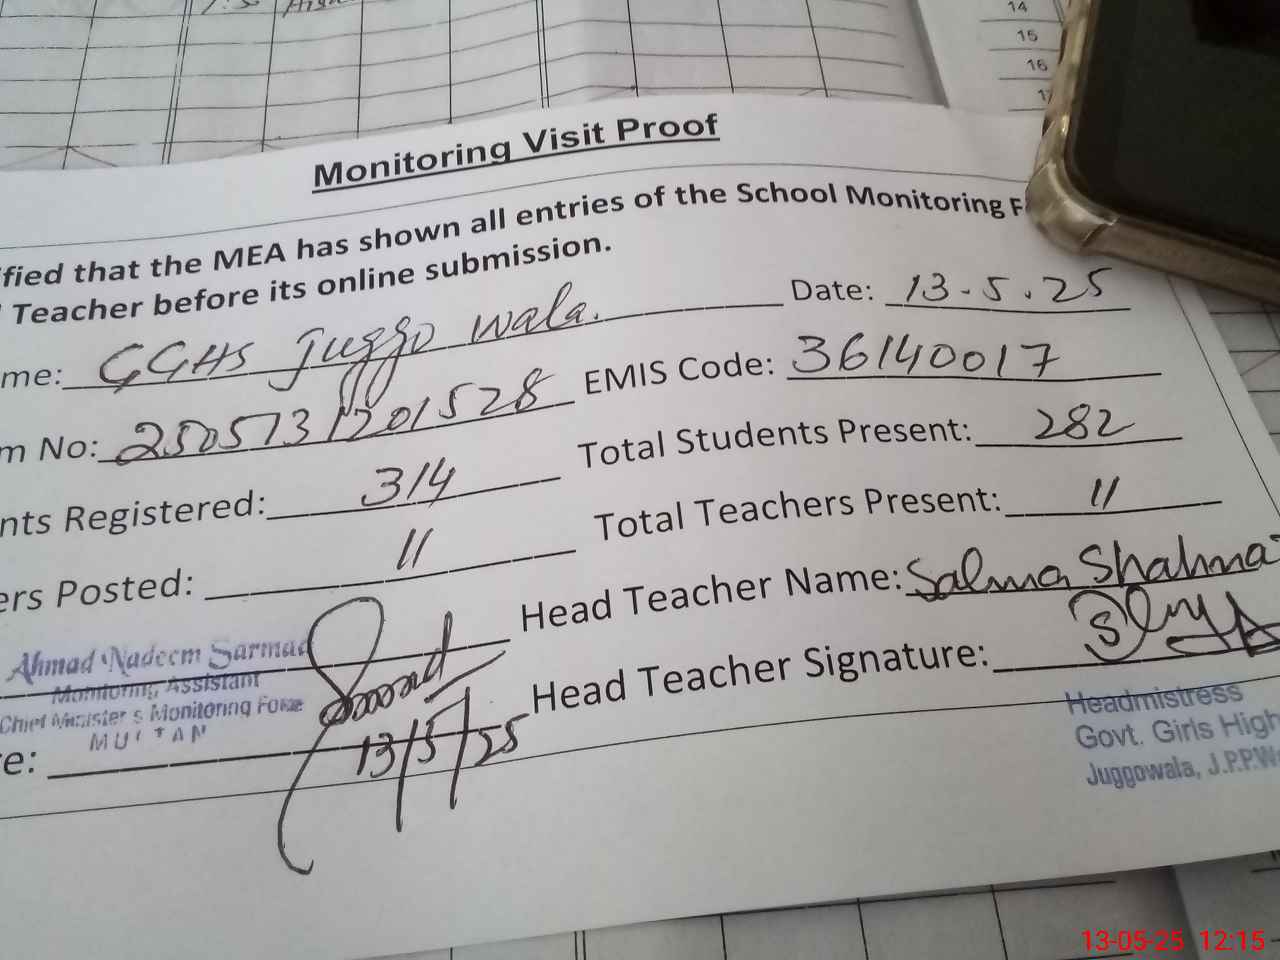 14
15
16
Monitoring Visit Proof
fied that the MEA has shown all entries of the School Monitoring F
Teacher before its online submission.
me: GGHS Juggo wala. Date: 13.5.25
m No: 2505731201528 EMIS Code: 36140017
nts Registered: 314 Total Students Present: 282
ers Posted: 11 Total Teachers Present: 11
Head Teacher Name: Salma Shahna
Ahmad Nadeem Sarmad
Monitoring Assistant
Chief Minister's Monitoring Force
MULTAN
13/5/25
Head Teacher Signature:
e:
Headmistress
Govt. Girls High
Juggowala, J.P.P.W
13-05-25 12:15